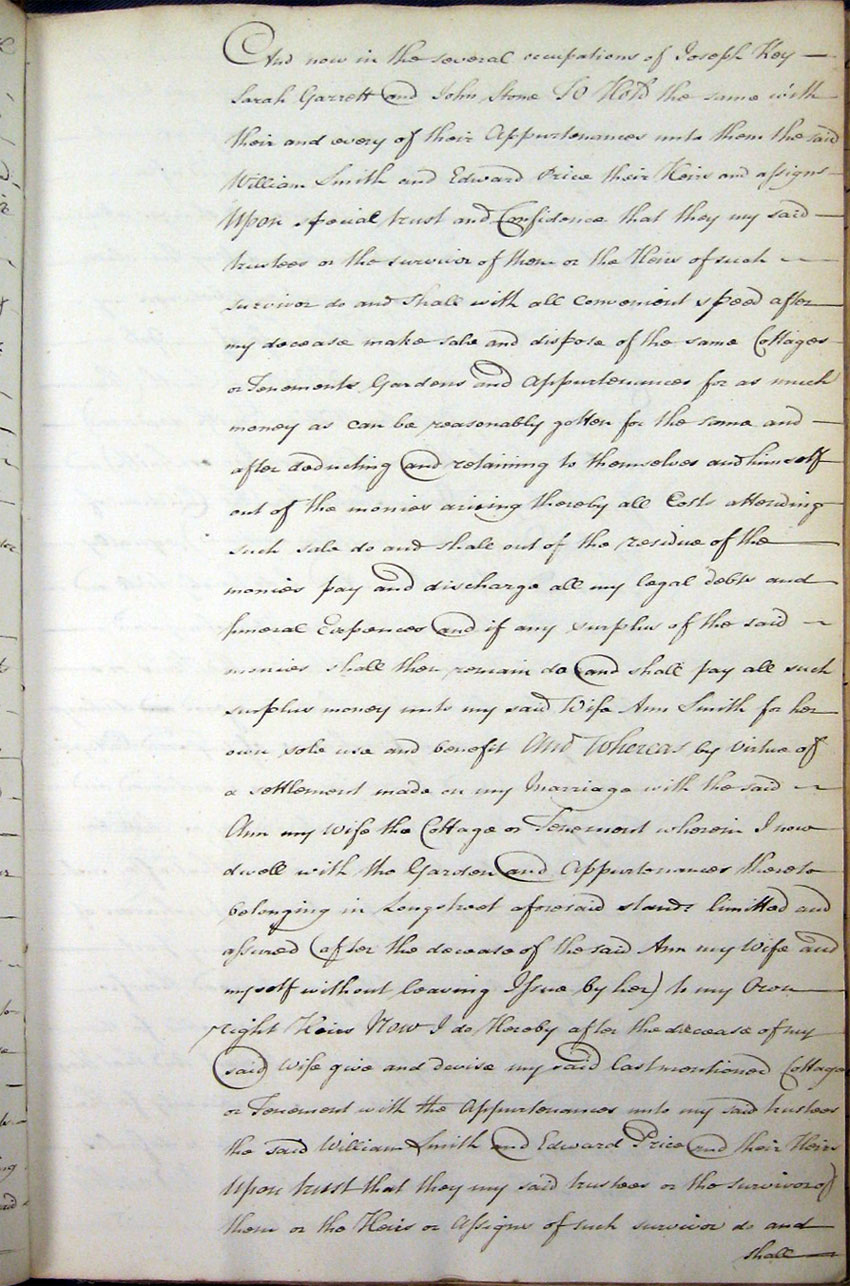 And now in the several occupations of Joseph Key
Sarah Garrett and John Stone To Hold the same with
their and every of their Appurtenances unto them the said
William Smith and Edward Price their Heirs and assigns
Upon special trust and Confidence that they my said
trustees or the survivor of them or the Heirs of such
survivor do and shall with all convenient speed after
my decease make sale and dispose of the same Cottages
or Tenements Gardens and Appurtenances for as much
money as can be reasonably gotten for the same and
after deducting and retaining to themselves and himself
out of the monies arising thereby all Costs attending
such sale do and shall out of the residue of the
monies pay and discharge all my legal debts and
funeral Expences and if any surplus of the said
monies shall then remain do and shall pay all such
surplus money unto my said Wife Ann Smith for her
own sole use and benefit And Whereas by virtue of
a settlement made on my Marriage with the said
Ann my Wife the Cottage or Tenement wherein I now
dwell with the Garden and Appurtenances thereto
belonging in Longstreet aforesaid stands limitted and
assured (after the decease of the said Ann my Wife and
myself without leaving Issue by her) to my Own
right Heirs Now I do Hereby after the decease of my
said Wife give and devise my said last mentioned Cottage
or Tenement with the Appurtenances unto my said trustees
the said William Smith and Edward Price and their Heirs
Upon trust that they my said trustees or the survivor of
them or the Heirs or Assigns of such survivor do and
shall